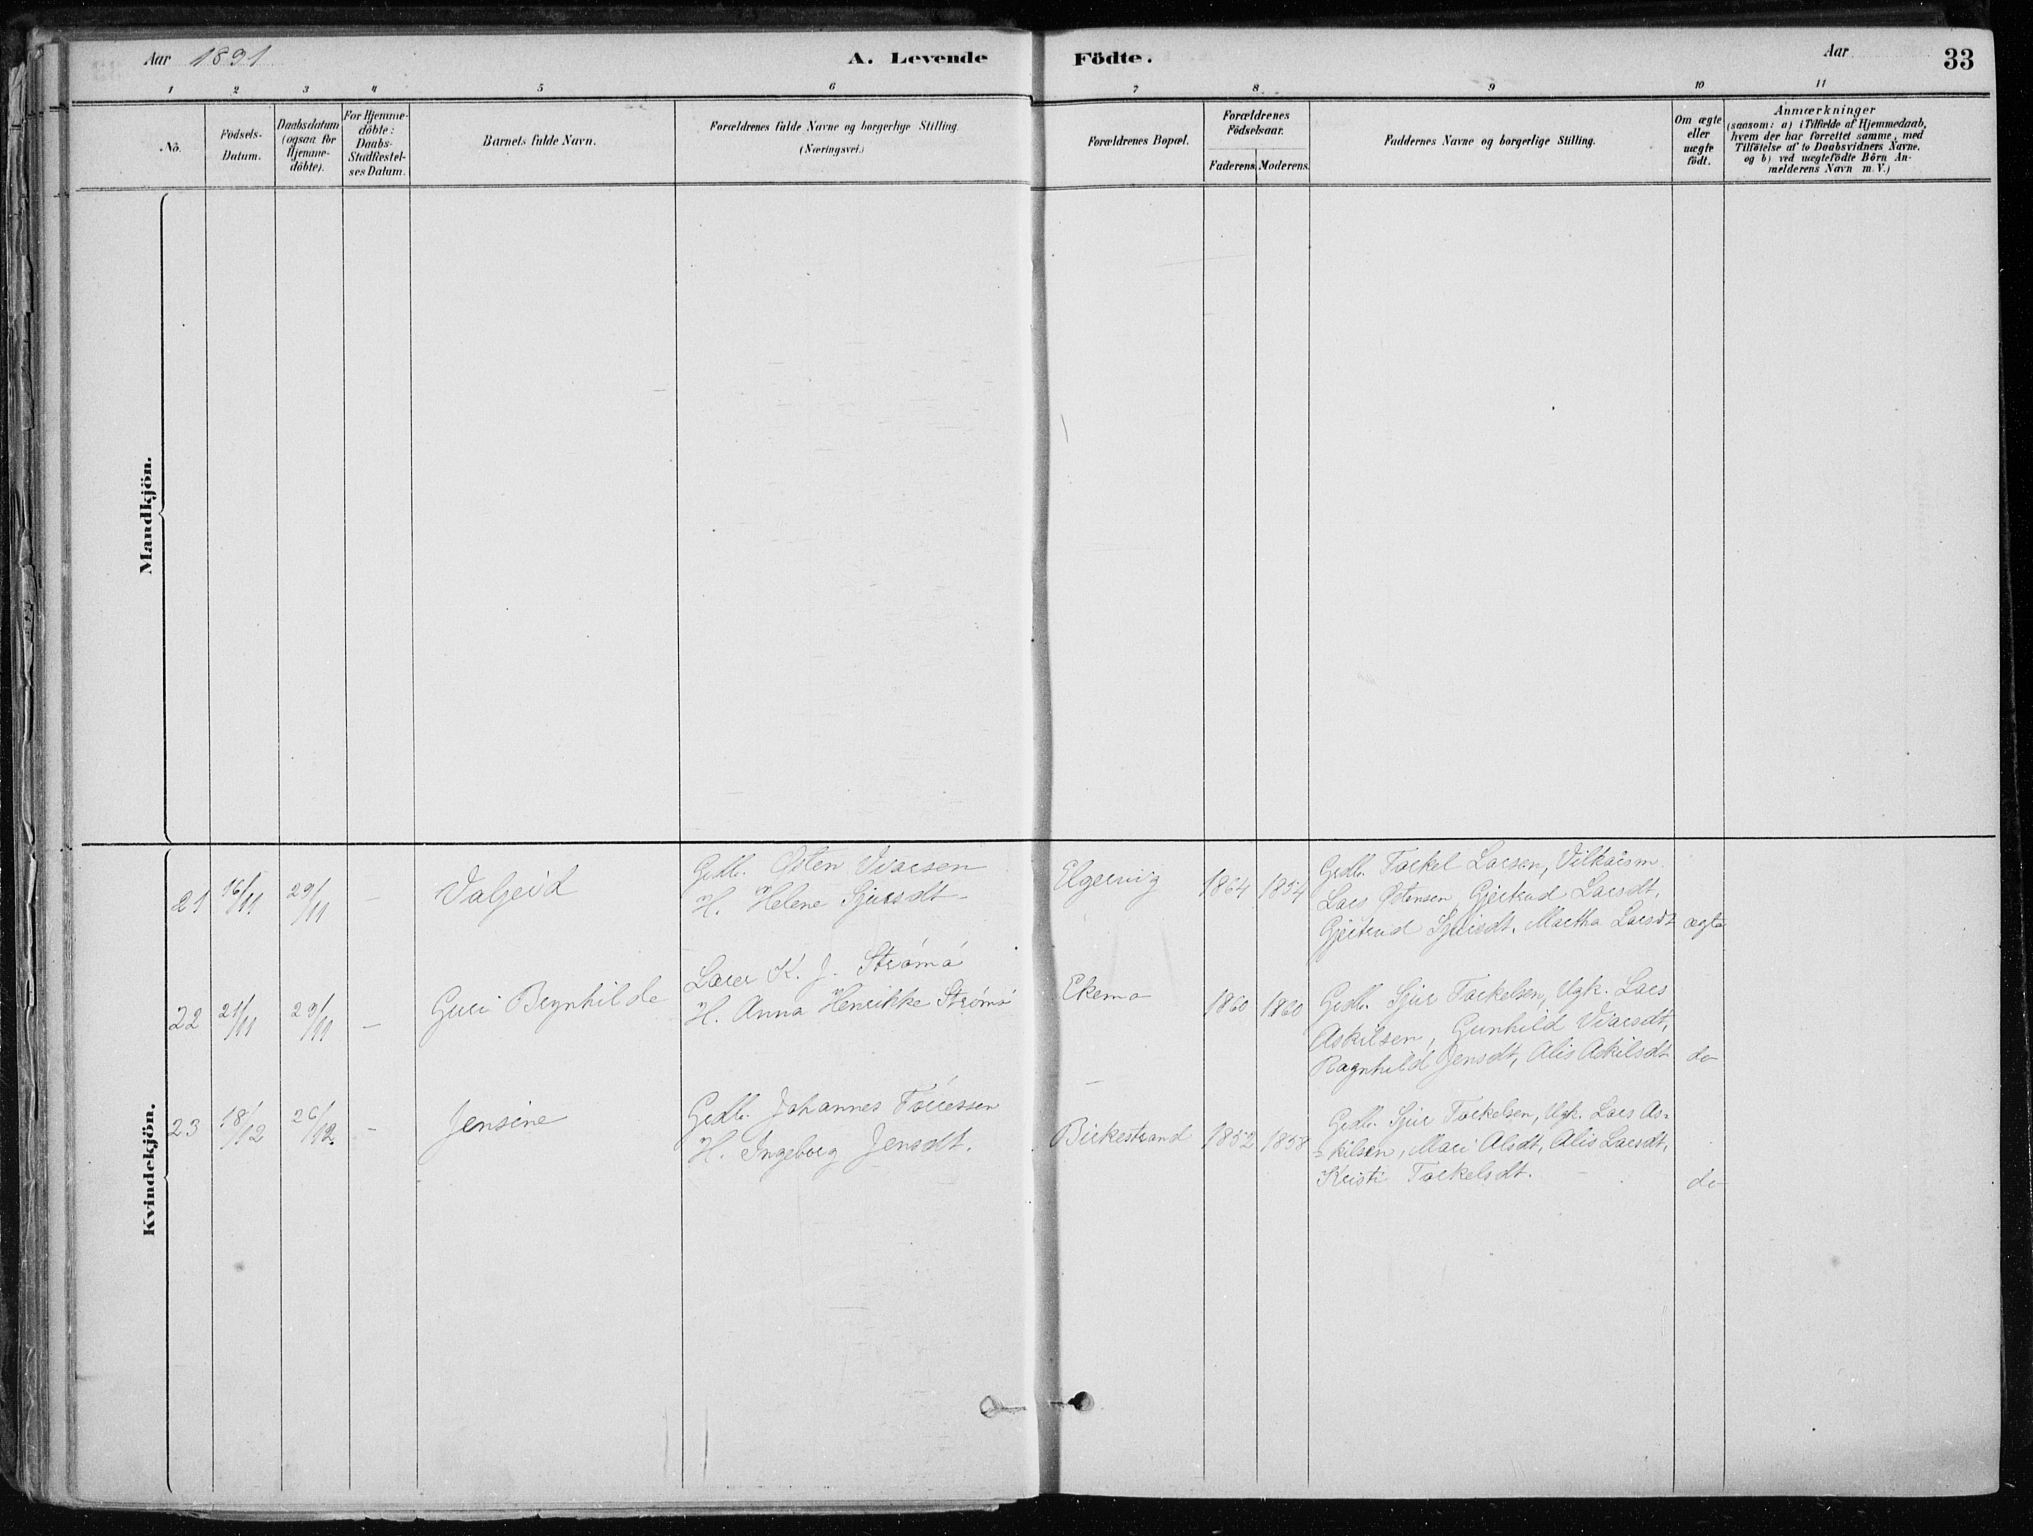 Aar 1891
A. Levende Födte.
Aar
33
1 2 3 4 5 6 7 8 9 10 11
No.
Födsels-
Datum.
Daabsdatum
(ogsaa for
Hjemme-
döbte).
For Hjemme-
döbte:
Daabs-
Stadfæstel-
ses Datum.
Barnets fulde Navn.
Forældrenes fulde Navne og borgerlige Stilling
(Næringsvei.)
Forældrenes Bopæl.
Forældrenes
Födselsaar.
Faderens. Moderens.
Faddernes Navne og borgerlige Stilling.
Om ægte
eller
uægte
födt.
Anmærkninger
(saasom: a) i Tilfælde af Hjemmedaab,
hvem der har forrettet samme, med
Tilföielse af to Daabsvidners Navne,
og b) ved uægtefödte Börn An-
melderens Navn m. V.)
Mandkjön.
Kvindekjön.
21 16/11 29/11 - Valgerd
Gedb. Østen Ivarsen
H. Helene Sjursdt.
1864 1854
Gedb. Torkel Larsen,
Lars Østensen, Gjertrud Larsdt,
Gjertrud Sjursdt. Martha Larsdt ægte
22 21/11 29/11 - Guri Brynhilde
Lærer K. J. Strømø
H. Anna Henrikke Strømø
Ekemo 1860 1860
Gedb. Sjur Torkelsen, Ugk. Lars
Askilsen, Gunhild Ivarsdt,
Ragnhild Jensdt, Alis Askilsdt do
23 18/12 26/12 - Jensine
Gedb. Johannes
H. Ingeborg Jensdt.
Birkestrand 1852 1858
Gedb. Sjur Torkelsen, Ugk. Lars As-
kilsen, Mari Alsdt, Alis Larsdt,
Kristi Torkelsdt. do